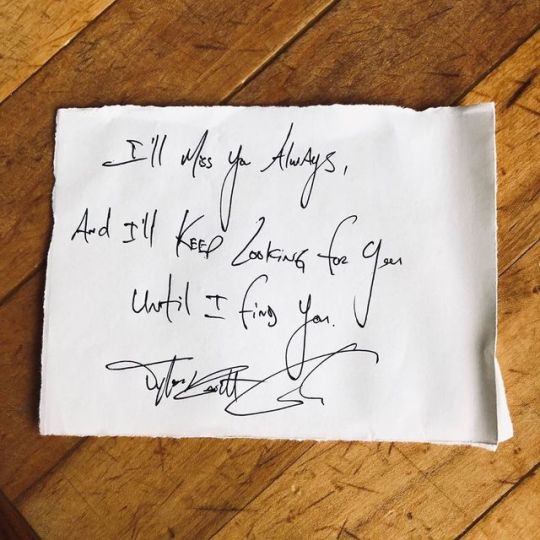 I'll Miss you Always,
And I'll Keep Looking for you
Until I find you.
Tyler Knott